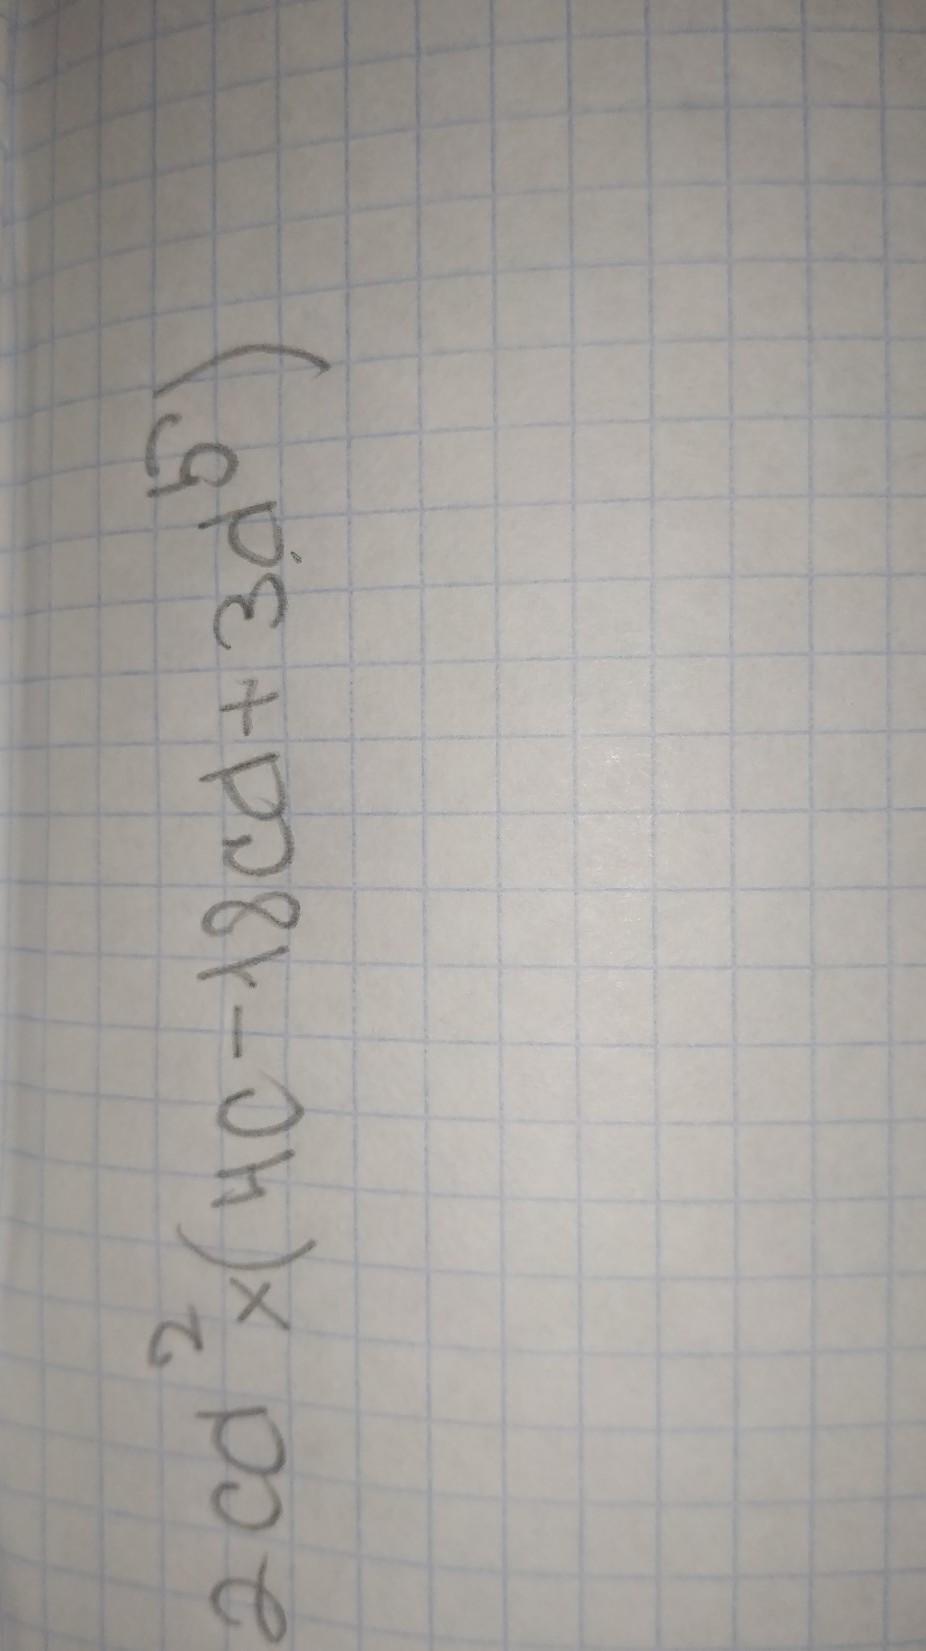 2cd² x(4c-18cd+3d⁵)